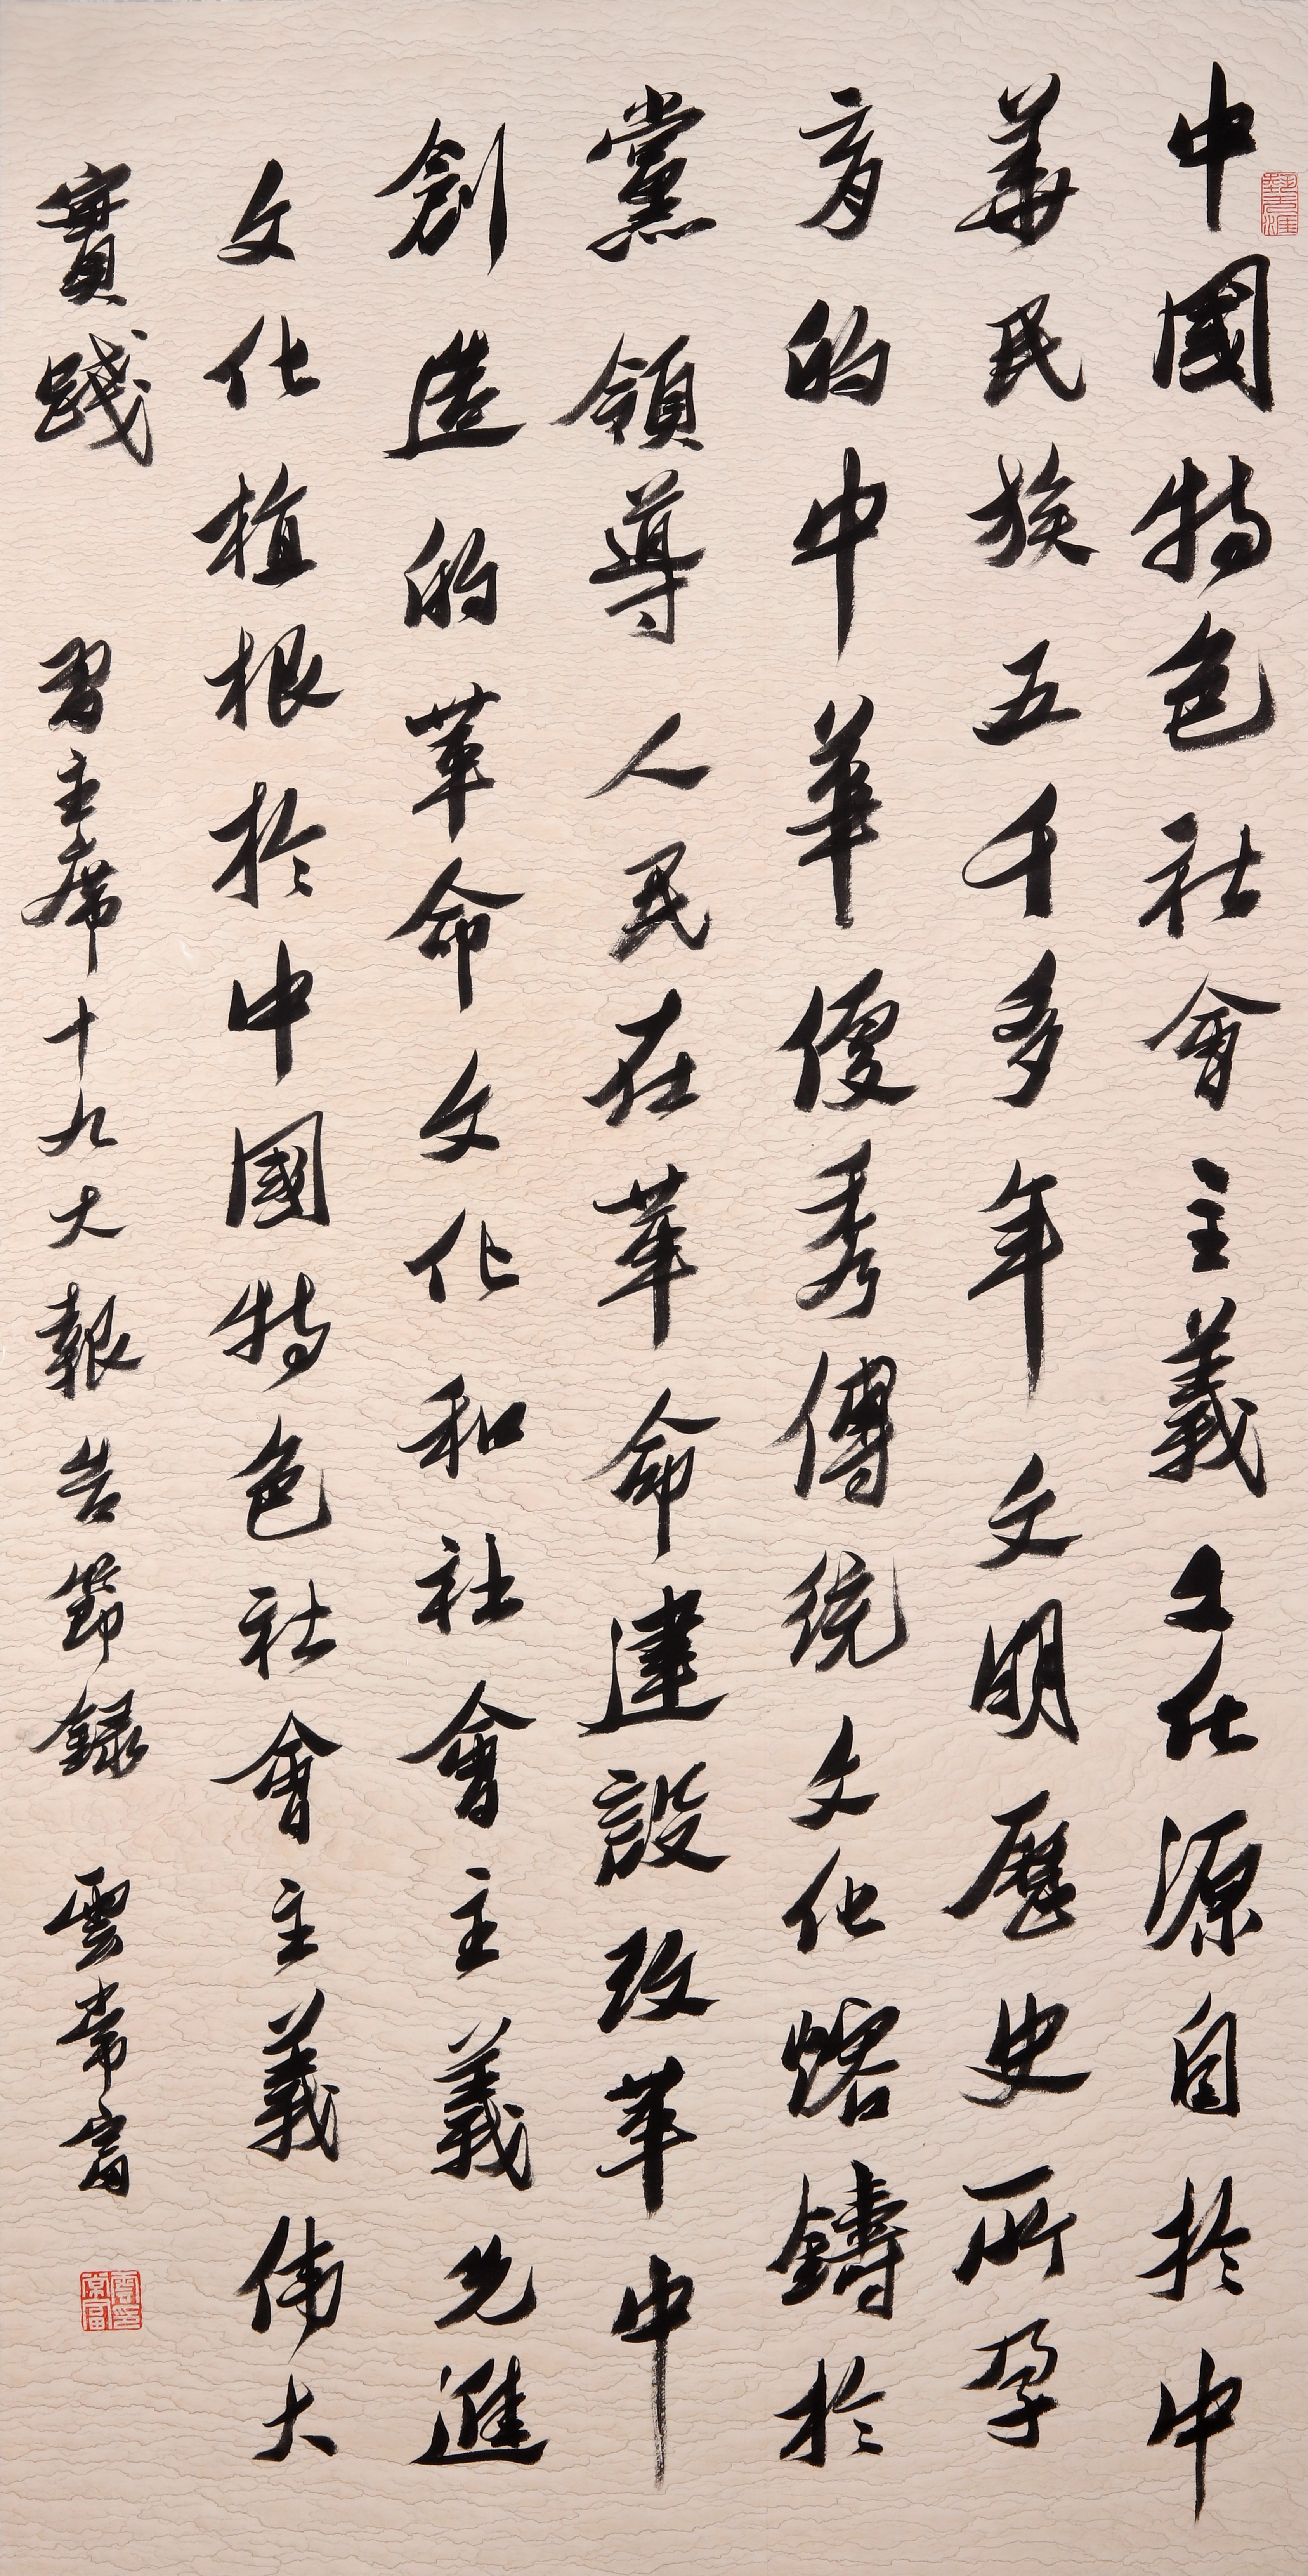 中國特色社會主義文化源自於中
華民族五千多年文明歷史所孕
育的中華優秀傳統文化熔鑄於
黨領導人民在革命建設改革中
創造的革命文化和社會主義先進
文化植根於中國特色社會主義偉大
實踐 習主席十九大報告節錄 雲常富
雲常富印